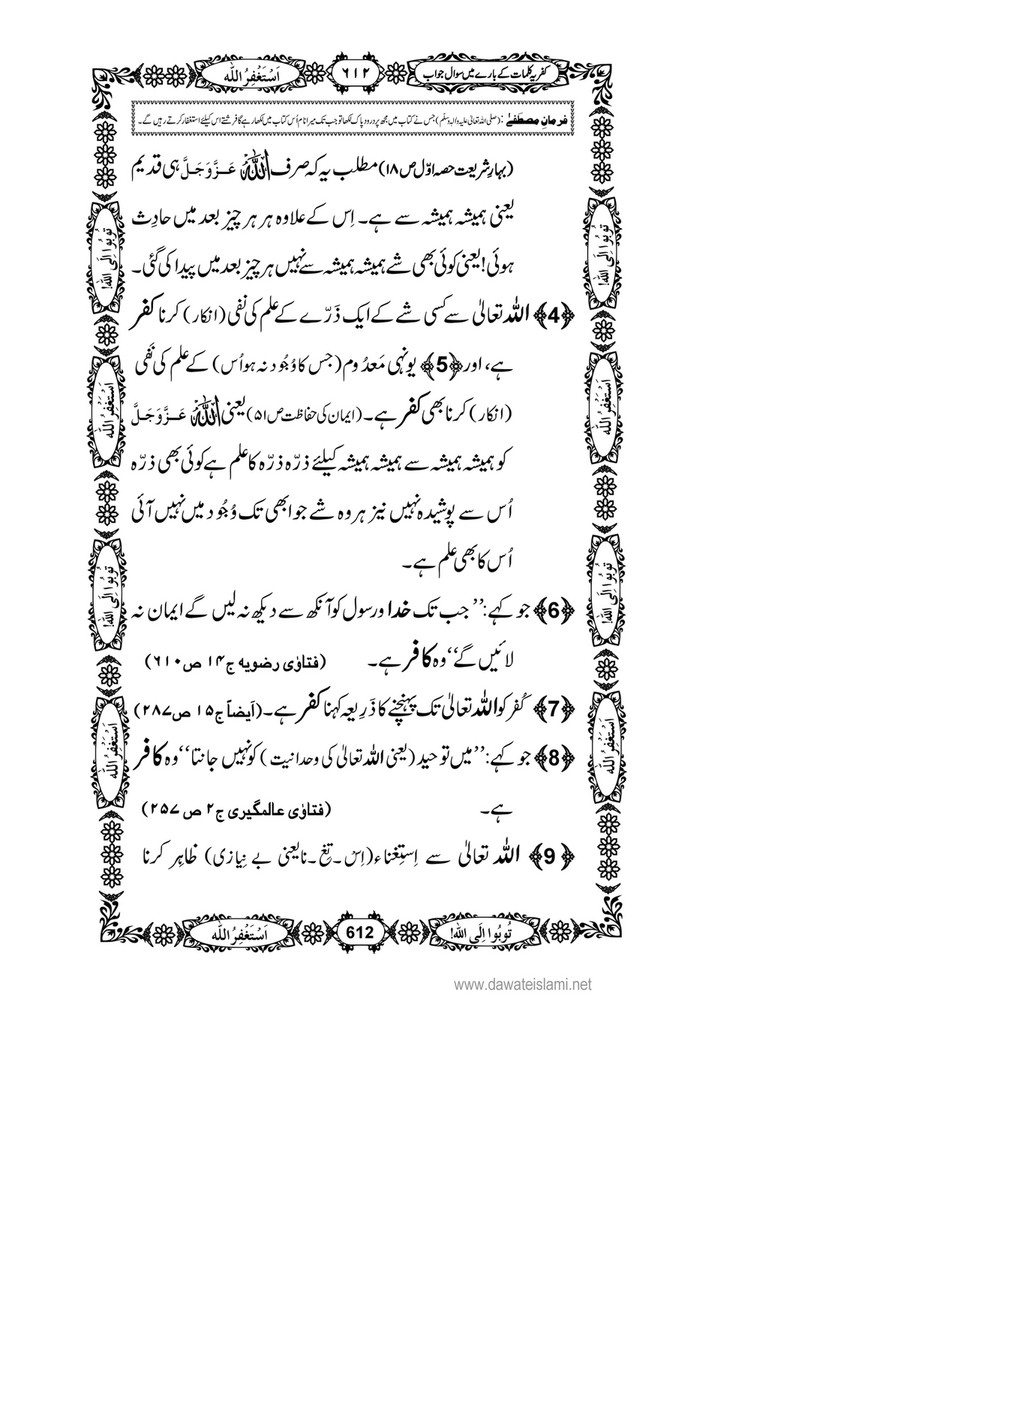 کفریہ کلمات کے بارے میں سوال جواب ٦١٢ اَسْتَغْفِرُ اللّٰه
فرمانِ مصطفےٰ : (صلی اللہ تعالیٰ علیہ واٰلہٖ وسلّم) جس نے کتاب میں مجھ پر درودِ پاک لکھا تو جب تک میرا نام اُس کتاب میں لکھا رہے گا فرشتے اس کیلئے استغفار کرتے رہیں گے۔
(بہارِ شریعت حصہ اوّل ص۱۸) مطلب یہ کہ صرف اللہ عَزَّوَجَلَّ ہی قدیم
یعنی ہمیشہ ہمیشہ سے ہے۔ اِس کے علاوہ ہر ہر چیز بعد میں حادِث
ہوئی! یعنی کوئی بھی شے ہمیشہ ہمیشہ سے نہیں ہر چیز بعد میں پیدا کی گئی۔
﴿4﴾ اللہ تعالیٰ سے کسی شے کے ایک ذَرّے کے علم کی نفی (انکار) کرنا کفر
ہے، اور ﴿5﴾ یونہی مَعدُوم (جس کا وُجُود نہ ہو اُس) کے علم کی نَفی
(انکار) کرنا بھی کفر ہے۔ (ایمان کی حفاظت ص۵۱) یعنی اللہ عَزَّوَجَلَّ
کو ہمیشہ ہمیشہ سے ہمیشہ ہمیشہ کیلئے ذرّہ ذرّہ کا علم ہے کوئی بھی ذرّہ
اُس سے پوشیدہ نہیں نیز ہر وہ شے جو ابھی تک وُجُود میں نہیں آئی
اُس کا بھی علم ہے۔
﴿6﴾ جو کہے: ’’جب تک خدا و رسول کو آنکھ سے دیکھ نہ لیں گے ایمان نہ
لائیں گے‘‘ وہ کافر ہے۔ (فتاوٰی رضویہ ج۱۴ ص۶۱۰)
﴿7﴾ کُفر کو اللہ تعالیٰ تک پہنچنے کا ذَرِیعہ کہنا کفر ہے۔ (اَیضاً ج۱۵ ص۲۸۷)
﴿8﴾ جو کہے: ’’میں توحید (یعنی اللہ تعالیٰ کی وحدانیت) کو نہیں جانتا‘‘ وہ کافر
ہے۔ (فتاوٰی عالمگیری ج۲ ص ۲۵۷)
﴿9﴾ اللہ تعالیٰ سے اِستِغناء (اِس۔تِغ۔نا یعنی بے نِیازی) ظاہِر کرنا
تُوبُوا اِلَی اللّٰه!
اَسْتَغْفِرُ اللّٰه
تُوبُوا اِلَی اللّٰه!
اَسْتَغْفِرُ اللّٰه
تُوبُوا اِلَی اللّٰه!
اَسْتَغْفِرُ اللّٰه
تُوبُوا اِلَی اللّٰه!
اَسْتَغْفِرُ اللّٰه
تُوبُوا اِلَی اللّٰه! 612 اَسْتَغْفِرُ اللّٰه
www.dawateislami.net